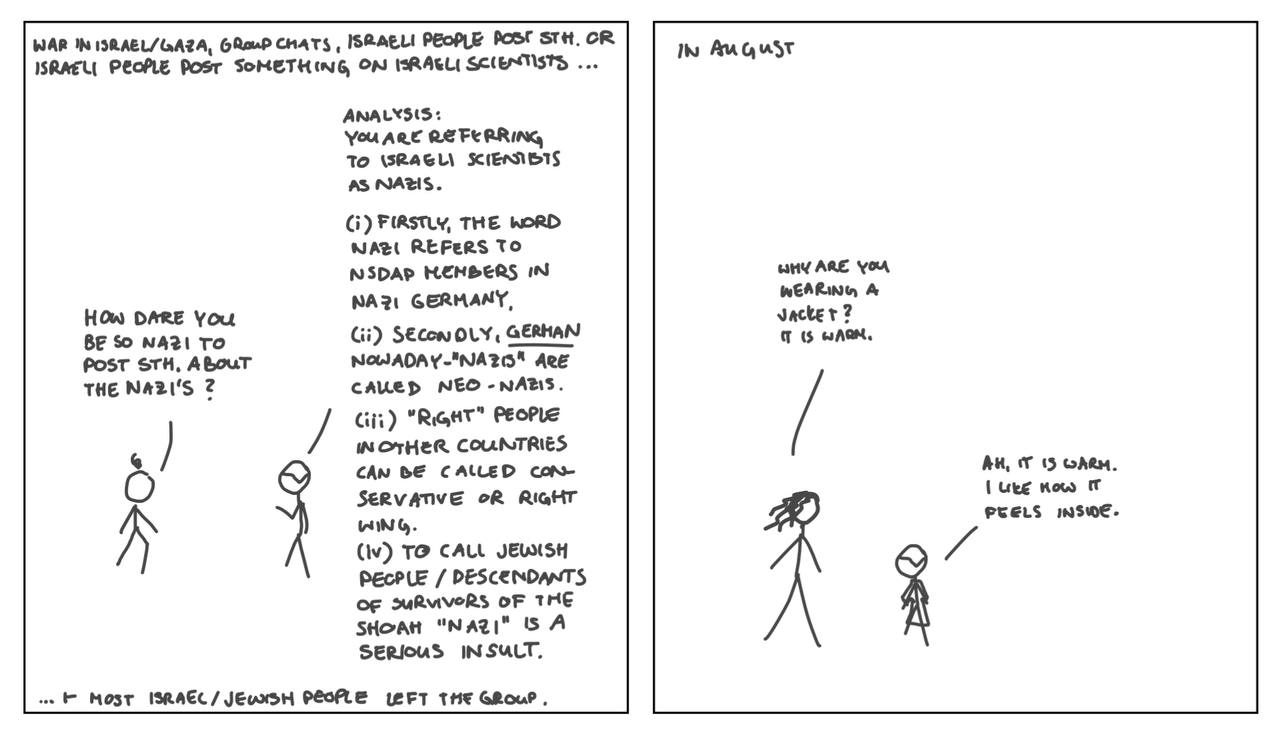 WAR IN ISRAEL/GAZA, GROUP CHATS, ISRAELI PEOPLE POST STH. OR
ISRAELI PEOPLE POST SOMETHING ON ISRAELI SCIENTISTS ...
ANALYSIS:
YOU ARE REFERRING
TO ISRAELI SCIENTISTS
AS NAZIS.
(i) FIRSTLY, THE WORD
NAZI REFERS TO
NSDAP MEMBERS IN
NAZI GERMANY.
(ii) SECONDLY, GERMAN
NOWADAY-"NAZIS" ARE
CALLED NEO-NAZIS.
(iii) "RIGHT" PEOPLE
IN OTHER COUNTRIES
CAN BE CALLED CON-
SERVATIVE OR RIGHT
WING.
(iv) TO CALL JEWISH
PEOPLE / DESCENDANTS
OF SURVIVORS OF THE
SHOAH "NAZI" IS A
SERIOUS INSULT.
HOW DARE YOU
BE SO NAZI TO
POST STH. ABOUT
THE NAZI'S ?
... MOST ISRAEL/JEWISH PEOPLE LEFT THE GROUP.
IN AUGUST
WHY ARE YOU
WEARING A
JACKET?
IT IS WARM.
AH, IT IS WARM.
I LIKE HOW IT
FEELS INSIDE.